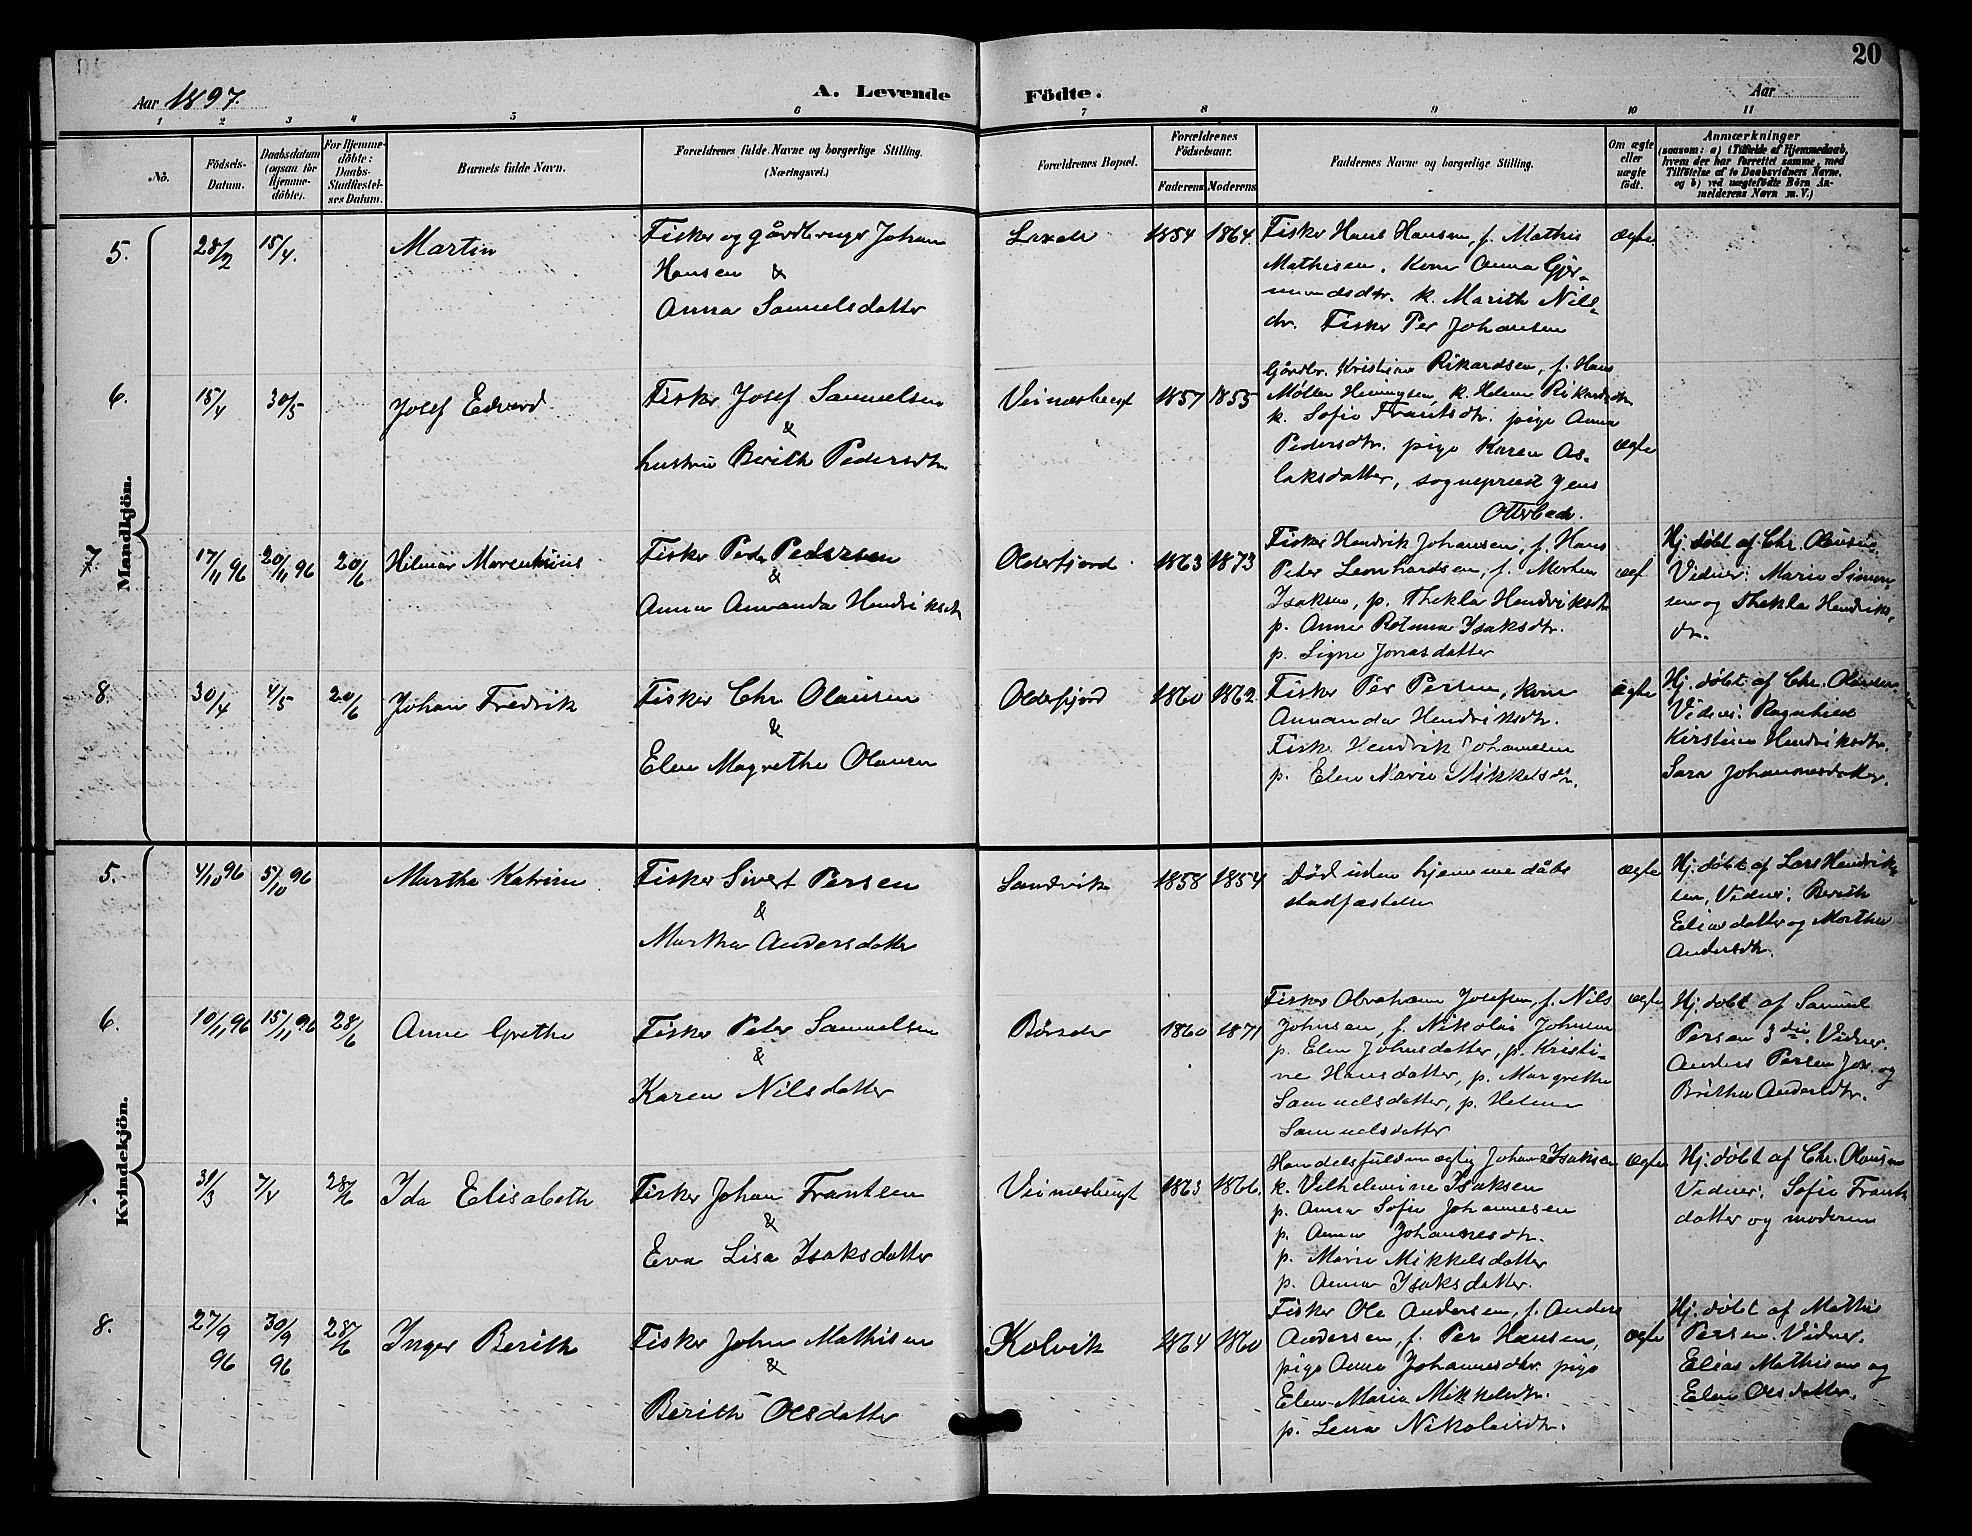 20
Aar 1897.
A. Levende Födte.
Aar
1 2 3 4 5 6 7 8 9 10 11
No.
Födsels-Datum.
Daabsdatum (ogsaa for Hjemme-döbte).
For Hjemme-döbte: Daabs-Stadfæstelses Datum.
Barnets fulde Navn.
Forældrenes fulde Navne og borgerlige Stilling.
(Næringsvei.)
Forældrenes Bopæl.
Forældrenes Födselsaar.
Faderens Moderens
Faddernes Navne og borgerlige Stilling.
Om ægte eller uægte födt.
Anmærkninger
(saasom: a) i Tilfælde af Hjemmedaab,
hvem der har forrettet samme, med
Tilföielse af to Daabsvidners Navne,
og b) ved uægtefödte Börn An-
melderens Navn m. V.)
Mandkjön.
5. 28/2 15/4. Martin
Fisker og gårdbruger Johan
Hansen &
Anna Samuelsdatter
1854 1864
Fisker Hans Hansen, f. Mathis
Mathisen. Kone Anna Gjer-
mundsdtr. k. Marith Nils-
dtr. Fisker Per Johansen
ægte
6. 15/4 30/5 Josef Edvard
Fisker Josef Samuelsen
&
hustru Berith Pedersdtr.
1857 1855
Gårdbr. Kristian Rikardsen, f. Hans
Møller Henningsen, k. Helene Rikardsdtr
k. Sofie Frantsdtr. pige Anna
Pedersdtr. pige Karen As-
laksdatter, sogneprest Jens
Otterbech.
ægte
7. 17/11 96 20/11 96 20/6 Hilmar Marentinius
Fisker Peder Pedersen
&
Anna Amanda Hendriksdtr
Olderfjord 1863 1873
Fisker Hendrik Johansen, f. Hans
Peter Leonhardsen, f. Morten
Isaksen, p. Thekla Hendriksdtr
p. Anne Isaksdtr.
p. Signe Jonasdatter
Hj. døbt af Chr. Olausen.
Vidner: Marie Simon-
sen og Thekla Hendriks-
dtr.
8. 30/4 4/5 20/6 Johan Fredrik
Fisker Chr. Olausen
&
Elen Magrethe Olausen
Olderfjord 1860 1862
Fisker Per Persen, kone
Amanda Hendriksdtr.
Fisker Hendrik Johannesen
p. Elen Marie Mikkelsdtr.
ægte
Hj. døbt af Chr. Olausen.
Vidner: Ragnhild
Kirstine Hendriksdtr.
Sara Johannesdatter.
Kvindekjön.
5. 4/10 96 5/10 96 Martha Katrine
Fisker Sivert Persen
&
Martha Andersdatter
Sandvik 1858 1854
Død uden hjemmedåbs
stadfæstelse
ægte
Hj. døbt af Lars Hendrik-
sen, Vidner: Berith
Eliasdatter og Martha
Andersdtr.
6. 10/11 96 15/11 96 28/6 Anne Grethe
Fisker Peter Samuelsen
&
Karen Nilsdatter
Børselv 1860 1871
Fisker Abraham Josefsen, f. Nils
Johnsen, f. Nikolai Johnsen
p. Elen Johnsdatter, p. Kristi-
ne Hansdatter, p. Margrethe
Samuelsdatter, p. Helene
Samuelsdatter
ægte
Hj. døbt af Samuel
Persen Vidner.
Anders Persen og
Britha Andersdtr.
7. 31/3 7/4 28/6 Ida Elisabeth
Fisker Johan Frantsen
&
Eva Lisa Isaksdatter
1863 1866
Handelsfuldmægtig Johan Isaksen
k. Vilhelmine Isaksen
p. Anna Sofie Johannesen
p. Anna Johannesdtr.
p. Marie Mikkelsdatter
p. Anna Isaksdatter.
ægte
Hj. døbt af Chr. Olausen
Vidner: Sofie Frants
datter og moderen
8. 27/9 96 30/9 96 28/6 Inger Berith
Fisker John Mathisen
&
Berith Olsdatter
Kolvik 1864 1860
Fisker Ole Andersen, f. Anders
Andersen, f. Per Hansen,
pige Anna Johannesdtr. pige
Elen Maria Mikkelsdtr.
p. Lena Nikolaisdtr.
ægte
Hj. døbt af Mathis
Persen. Vidner.
Elias Mathisen og
Elen Olsdatter.